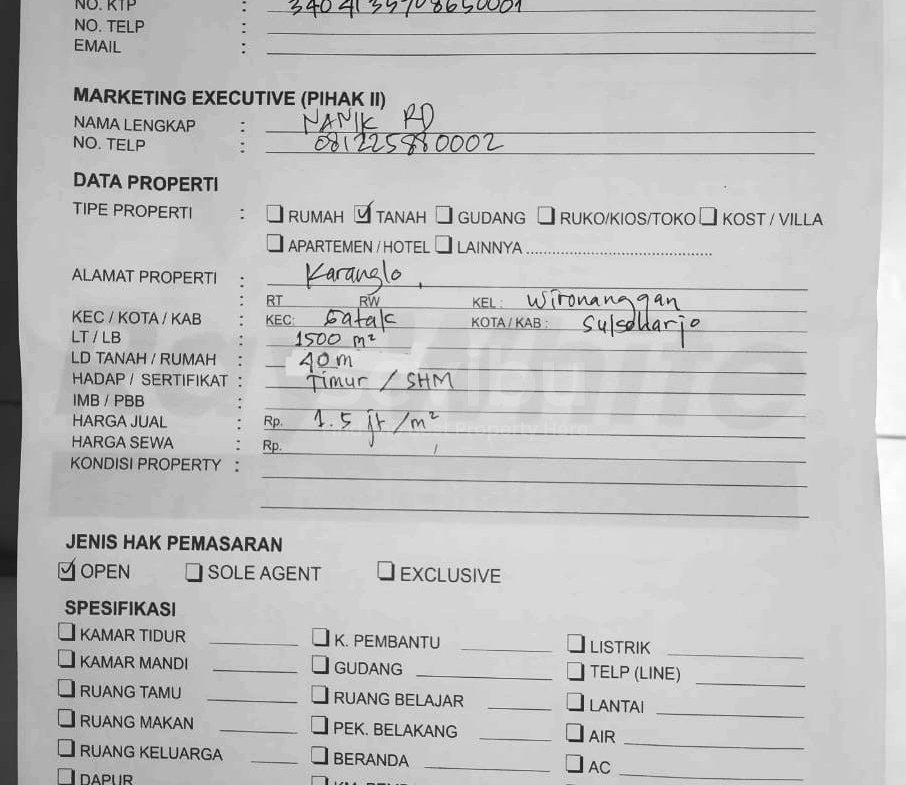 NO. KTP :
NO. TELP :
EMAIL :
MARKETING EXECUTIVE (PIHAK II)
NAMA LENGKAP : NANIK RD
NO. TELP : 081225880002
DATA PROPERTI
TIPE PROPERTI : RUMAH TANAH GUDANG RUKO/KIOS/TOKO KOST / VILLA
APARTEMEN / HOTEL LAINNYA
ALAMAT PROPERTI : Karanglo,
: RT RW KEL : Wironanggan
KEC / KOTA / KAB : KEC: Gatak KOTA / KAB : Sukoharjo
LT / LB : 1500 m²
LD TANAH / RUMAH : 40 m
HADAP / SERTIFIKAT : Timur / SHM
IMB / PBB :
HARGA JUAL : Rp. 1.5 jt /m²
HARGA SEWA : Rp.
KONDISI PROPERTY :
JENIS HAK PEMASARAN
OPEN SOLE AGENT EXCLUSIVE
SPESIFIKASI
KAMAR TIDUR K. PEMBANTU LISTRIK
KAMAR MANDI GUDANG TELP (LINE)
RUANG TAMU RUANG BELAJAR LANTAI
RUANG MAKAN PEK. BELAKANG AIR
RUANG KELUARGA BERANDA AC
DAPUR